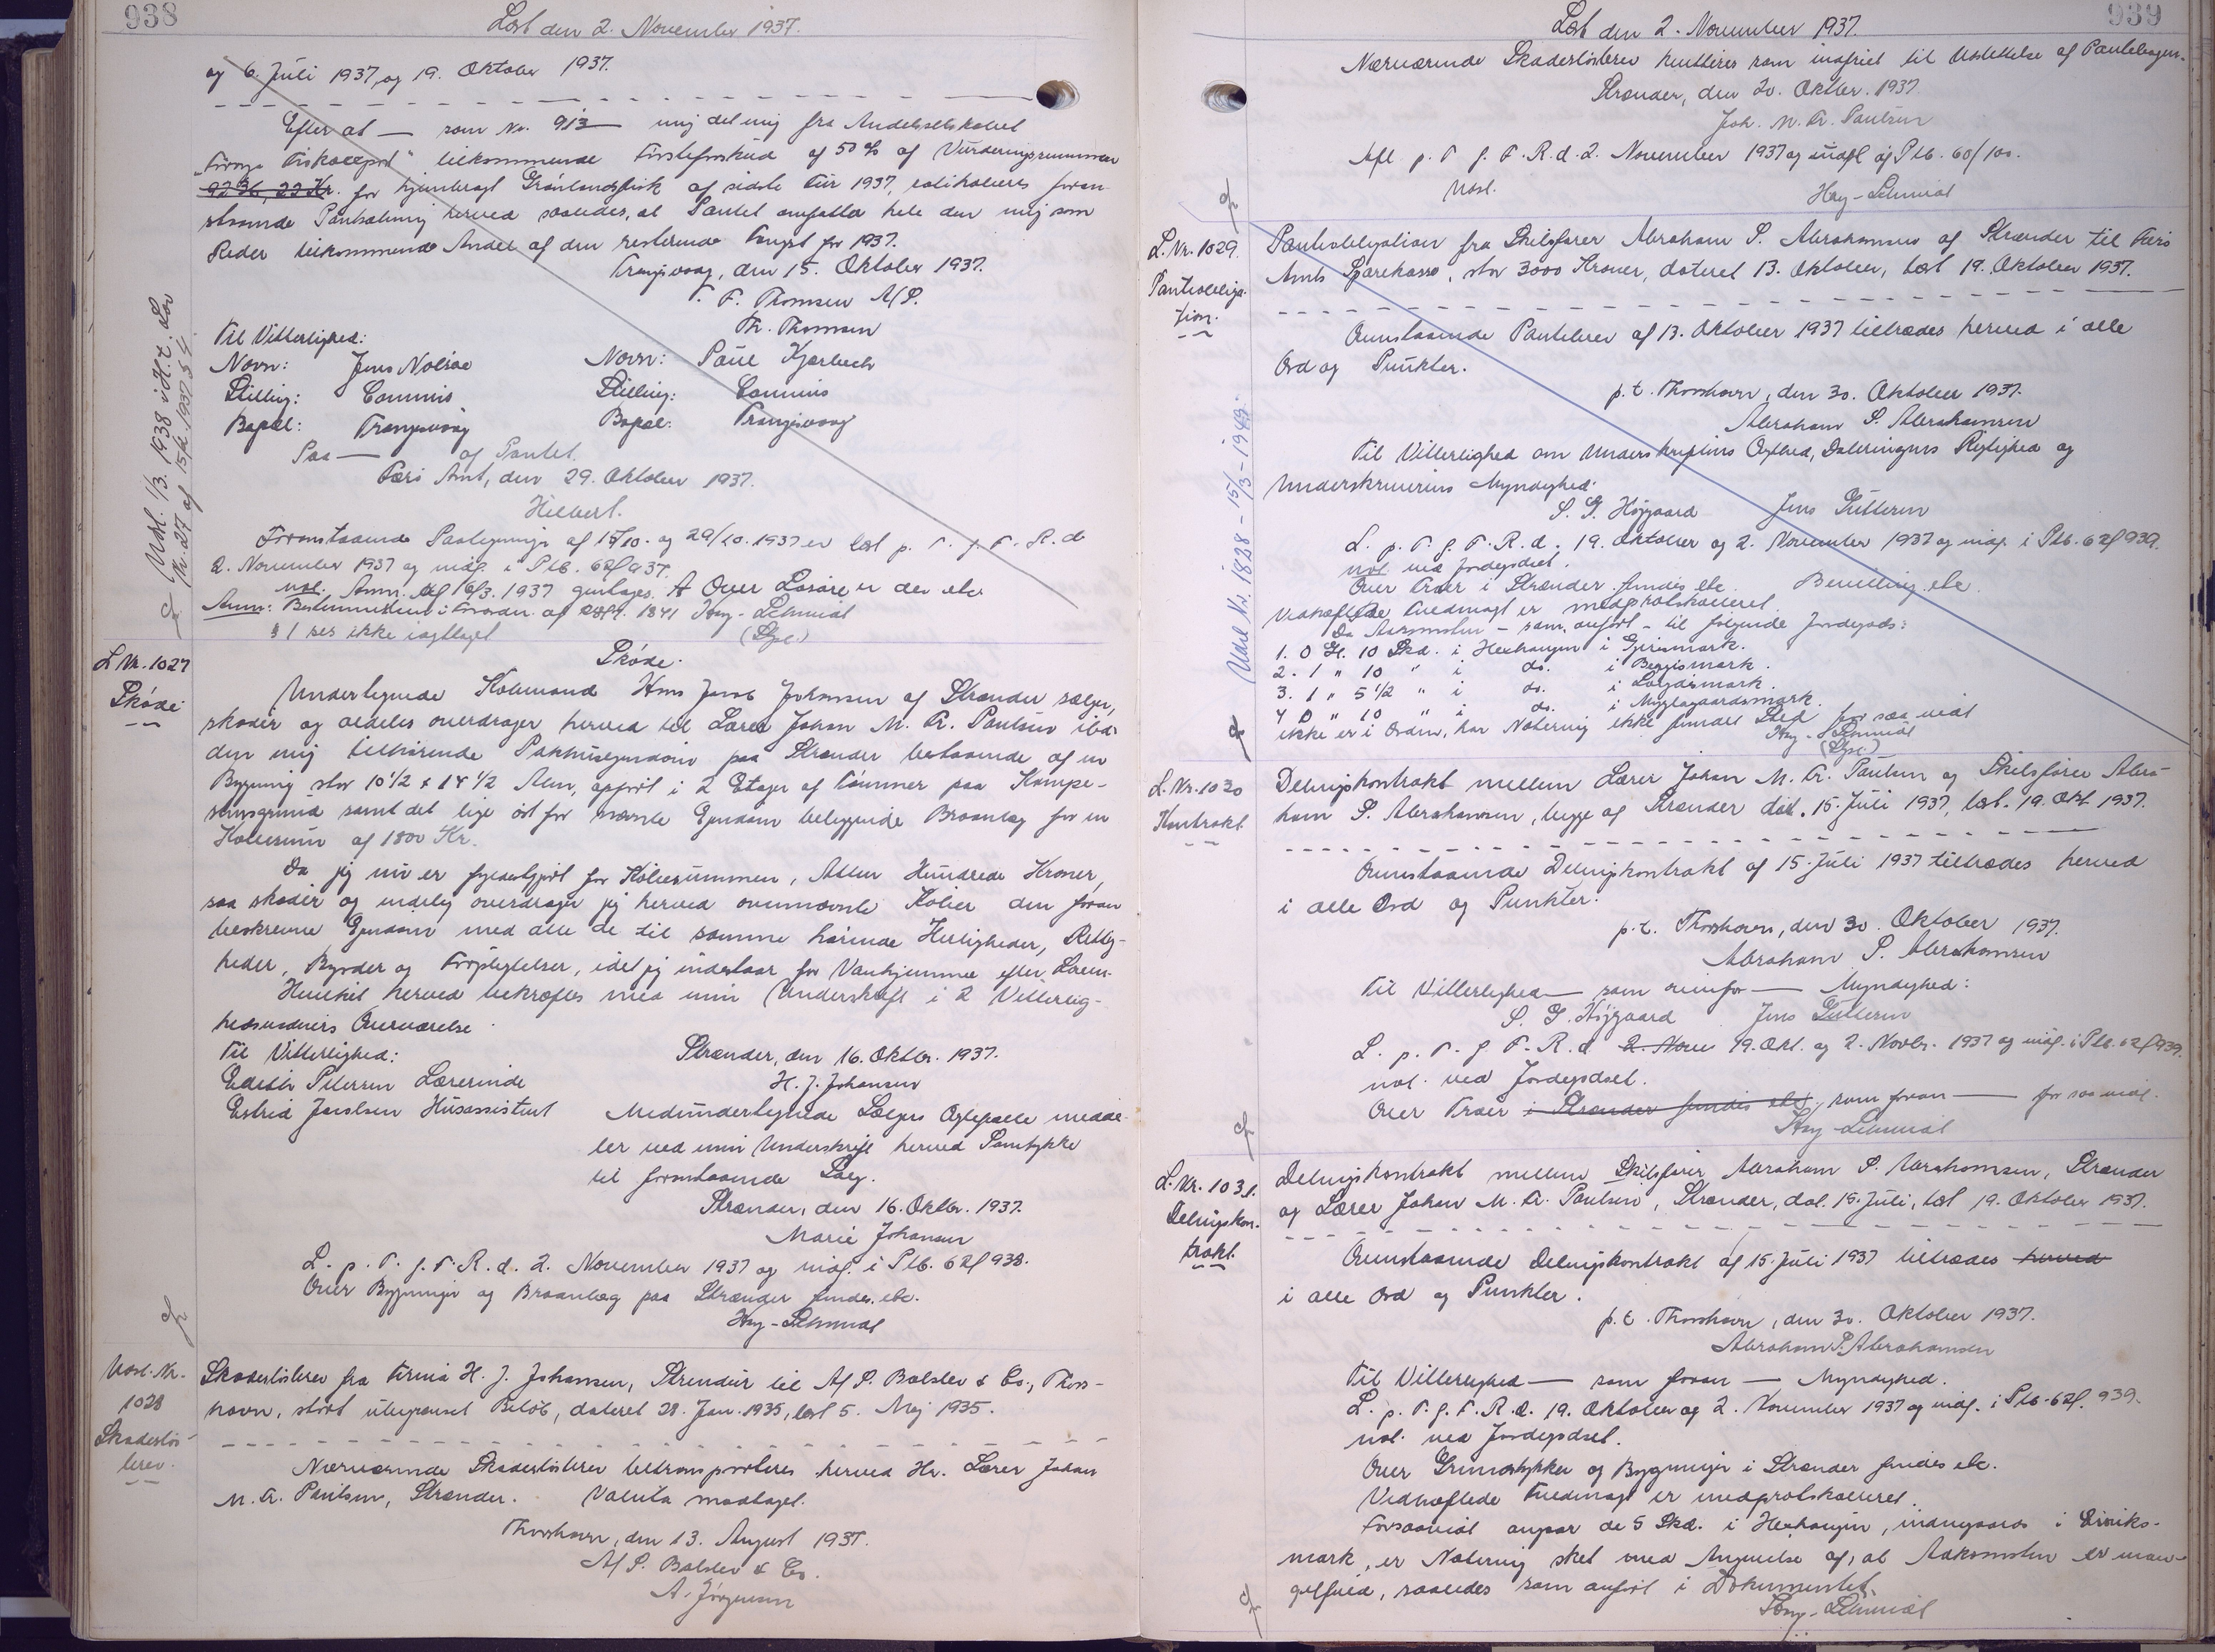 938
Læst den 2. November 1937.
og 6. Juli 1937, og 19. Oktober 1937.
Efter at — som Nr. 913 — mig del mig fra Andelsselskabet
"Føroya Fiskaexport" tilkommende Førsteforskud af 50 % af Vurderingssummen
for hjembragt Grønlandsfisk af sidste Tur 1937, foran-
staaende Pantsætning herved saaledes, at Pantet omfatter hele den mig som
Reder tilkommende Andel af den resterende Fangst for 1937.
Trangisvaag, den 15. Oktober 1937.
T. F. Thomsen A/S.
Th. Thomsen
Til Vitterlighed:
Navn: Jens Nolsøe Navn: Poul Kjærbech
Stilling: Commis Stilling: Commis
Bopæl: Trangisvaag Bopæl: Trangisvaag
Paa — af Pantet.
Færø Amt, den 29. Oktober 1937.
Hilbert.
Foranstaaende Paategninger af 15/10. og 29/10. 1937 er læst p. T. f. F. R. d.
2. November 1937 og indf. i Ptb. 62f 937.
not. Anm. af 16/3. 1937 gentages. Over Lasare er der etc.
Anm: Bestemmelsen i Forordn. af 1841 Hey-Schmidt
§ 1 ses ikke iagttaget (Spl.)
Udsl. 1/3. 1938 i H. t. Lov
Nr. 27 af 15/2. 1937 § 4.
L. Nr. 1027
Skøde
Skøde.
Undertegnede Købmand Hans Jacob Johansen af Strænder sælger,
skøder og aldeles overdrager herved til Lærer Johan M. Fr. Paulsen ibd.
den mig tilhørende Pakhusejendom paa Strænder bestaaende af en
Bygning stor 10 1/2 x 14 1/2 Alen, opført i 2 Etager af Tømmer paa Kampe-
stensgrund samt det lige øst for nævnte Ejendom beliggende Braanlæg for en
Købesum af 1800 Kr.
Da jeg nu er fyldestgjort for Købesummen, Atten Hundrede Kroner,
saa skøder og endelig overdrager jeg herved ovennævnte Køber den foran
beskrevne Ejendom med alle de til samme hørende Herligheder, Rettig-
heder, Byrder og Forpligtelser, idet jeg indestaar for Vanhjemmel efter Loven.
Hvilket herved bekræftes med min Underskrift i 2 Vitterlig-
hedsvidners Overværelse.
Til Vitterlighed: Strænder, den 16. Oktbr. 1937.
Edith Petersen Lærerinde H. J. Johansen
Estrid Jacobsen Husassistent Medundertegnede Sælgers Ægtefælle medde-
ler ved min Underskrift herved Samtykke
til foranstaaende Salg.
Strænder, den 16. Oktbr. 1937.
Marie Johansen
L. p. T. f. F. R. d. 2. November 1937 og indf. i Ptb. 62f 938.
Over Bygninger og Braanlæg paa Strænder findes etc.
Hey-Schmidt
Udsl. Nr.
1028
Skadesløs-
brev.
Skadesløsbrev fra Firma H. J. Johansen, Strendur til A/S P. Balslev & Co., Thors-
havn, stort ubegrænset Beløb, dateret 28. Jan. 1935, læst 5. Maj 1935.
Nærværende Skadesløsbrev tiltransporteres herved Hr. Lærer Johan
M. Fr. Paulsen, Strænder. Valuta modtaget.
Thorshavn, den 13. August 1937.
A/S P. Balslev & Co.
A. Jørgensen
939
Læst den 2. November 1937.
Nærværende Skadesløsbrev kvitteres som indfriet til Udslettelse af Pantebogen.
Strænder, den 20. Oktber. 1937.
Joh. M. Fr. Paulsen
Afl. p. T. f. F. R. d. 2. November 1937 og indf. af Ptb. 60/100.
Udsl. Hey-Schmidt
L. Nr. 1029.
Pantobliga-
tion.
Pantobligation fra Skibsfører Abraham S. Abrahamsen af Strænder til Færø
Amts Sparekasse, stor 3000 Kroner, dateret 13. Oktober, læst 19. Oktober 1937.
Ovenstaaende Pantebrev af 13. Oktober 1937 tiltrædes herved i alle
Ord og Punkter.
p. t. Thorshavn, den 30. Oktober 1937.
Abraham S. Abrahamsen
Til Vitterlighed om Underskriftens Ægthed, Dateringens Rigtighed og
Underskriverens Myndighed:
S. G. Højgaard Jens Gutterm
L. p. T. f. F. R. d. 19. Oktober og 2. November 1937 og indf. i Ptb. 62f 939.
not. ved Jordegodset.
Over Traer i Strænder findes etc. Bevilling etc.
Vedhæftede Fuldmagt er medprotokolleret.
Da Adkomsten - som anført - til følgende Jordegods:
1. 0 G. 10 Skd. i Hexhaugen i Gerismark.
2. 1 " 10 " i do. i Beggismark.
3. 1 " 5 1/2 " i do. i Lorgdismark.
4. 0 " 10 " i do. i Myglagaardsmark.
ikke er i Orden, har Notering ikke fundet Sted for saa vidt
Hey-Schmidt
(Spl.)
Udsl. Nr. 1828 - 15/3 - 1949.
L. Nr. 1030
Kontrakt
Delingskontrakt mellem Lærer Johan M. Fr. Paulsen og Skibsfører Abra-
ham S. Abrahamsen, begge af Strænder dat. 15. Juli 1937, læst. 19. Okt. 1937.
Ovenstaaende Delingskontrakt af 15. Juli 1937 tiltrædes herved
i alle Ord og Punkter.
p. t. Thorshavn, den 30. Oktober 1937.
Abraham S. Abrahamsen
Til Vitterlighed — som ovenfor — Myndighed:
S. G. Højgaard Jens Gutterm
L. p. T. f. F. R. d. 2. Nove 19. Okt. og 2. Novbr. 1937 og indf. i Ptb. 62f 939.
not. ved Jordegodset.
Over Traer i Strænder findes etc., som foran — for saa vidt.
Hey-Schmidt
L. Nr. 1031.
Delingskon-
trakt.
Delingskontrakt mellem Skibsfører Abraham S. Abrahamsen, Strænder
og Lærer Johan M. Fr. Paulsen, Strænder, dat. 15. Juli, læst 19. Oktober 1937.
Ovenstaaende Delingskontrakt af 15. Juli 1937 tiltrædes herved
i alle Ord og Punkter.
p. t. Thorshavn, den 30. Oktober 1937.
Abraham S. Abrahamsen
Til Vitterlighed — som foran — Myndighed.
L. p. T. f. F. R. d. 19. Oktober og 2. November 1937 og indf. i Ptb. 62f. 939.
not. ved Jordegodset.
Over Grundstykker og Bygninger i Strænder findes etc.
Vedhæftede Fuldmagt er medprotokolleret.
Forsaavidt angaar de 5 Skd. i Hexhaugen, indgaaende i
mark, er Notering sket med Angivelse af, at Adkomsten er man-
gelfuld, saaledes som anført i Dokumentet.
Hey-Schmidt